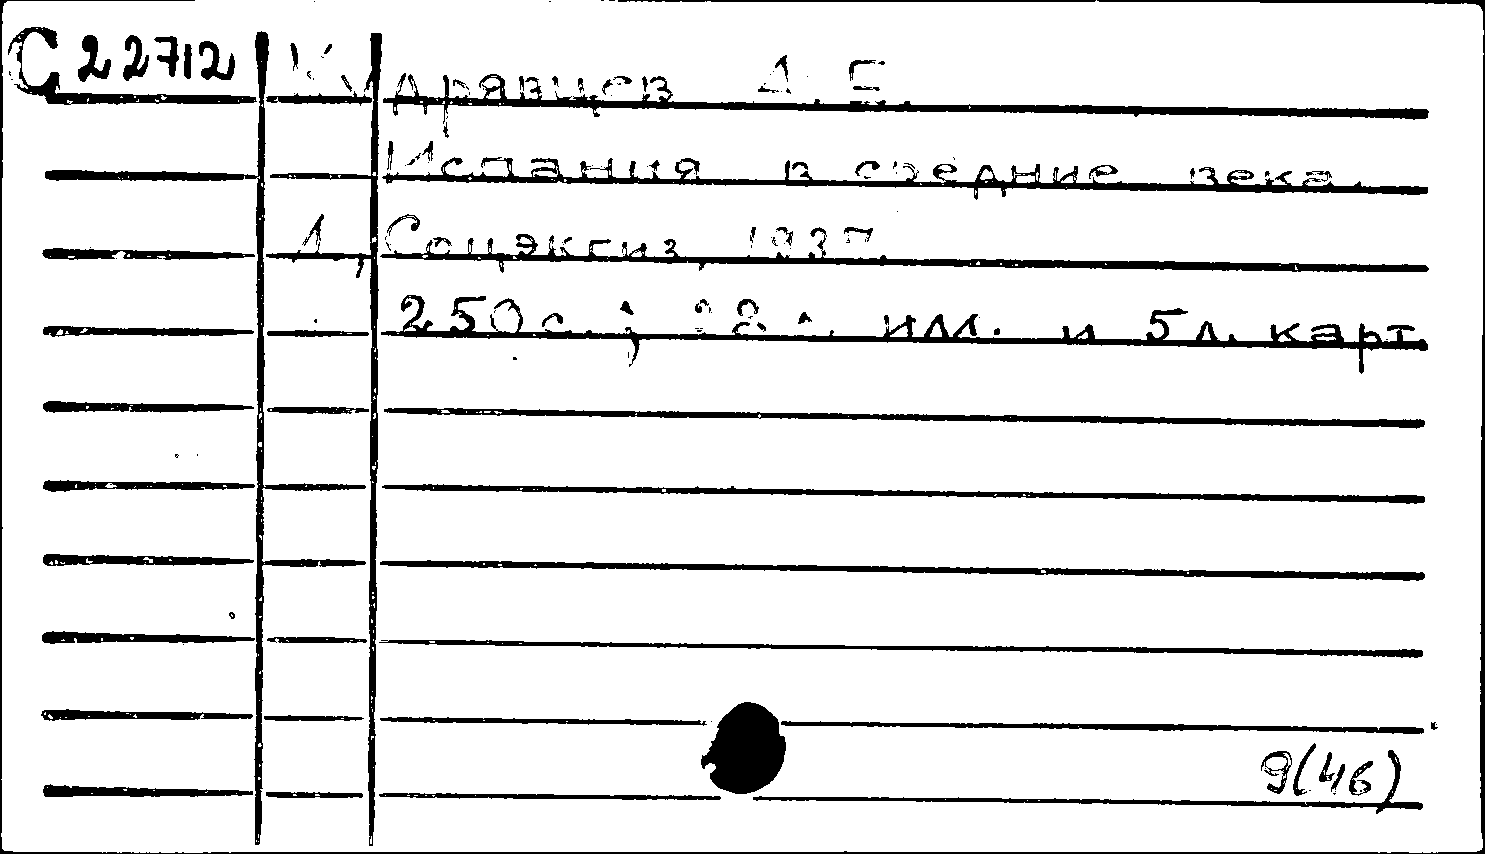 С 22712 Кудрявцев А. Е.
Испания в средние века.
Л., Соцэкгиз, 1937.
250 с.; 28 л. илл. и 5 л. карт.
9(46)